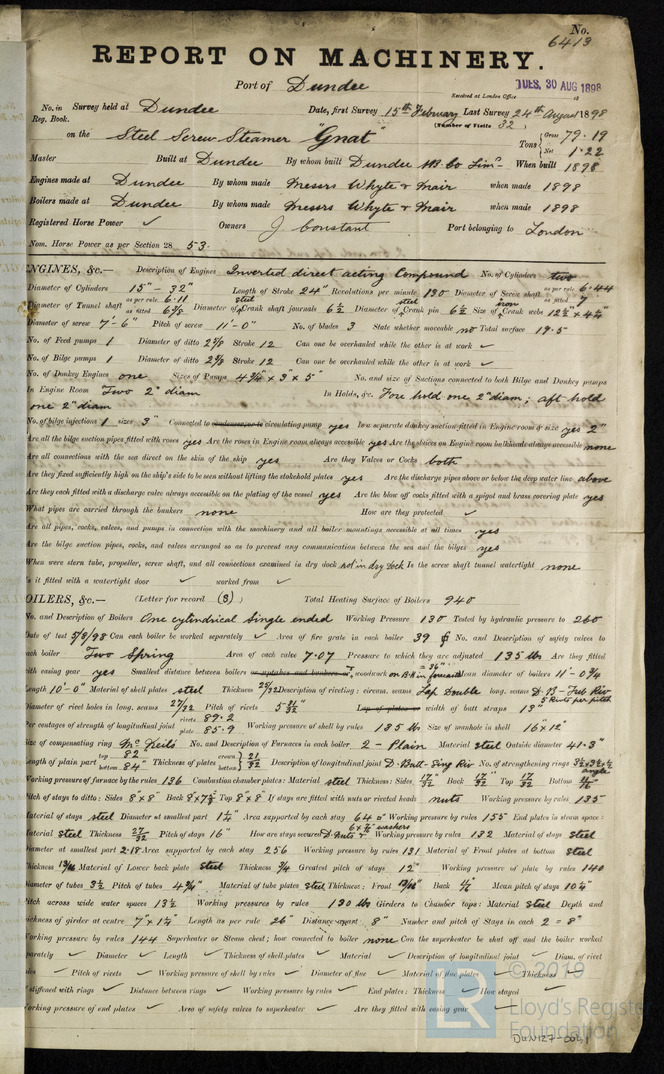 No.
6413
REPORT ON MACHINERY.
Port of Dundee
Received at London Office TUES, 30 AUG 1898
No. in Reg. Book. Survey held at Dundee Date, first Survey 15th February Last Survey 24th August 1898
(Number of Visits 32)
on the Steel Screw Steamer "Gnat" Tons { Gross 79.19 Net 1.22
Master Built at Dundee By whom built Dundee SB. Co Limd When built 1898
Engines made at Dundee By whom made Messrs Whyte & Mair when made 1898
Boilers made at Dundee By whom made Messrs Whyte & Mair when made 1898
Registered Horse Power ✓ Owners J Constant Port belonging to London
Nom. Horse Power as per Section 28 53
ENGINES, &c.— Description of Engines Inverted direct acting Compound No. of Cylinders two
Diameter of Cylinders 15" - 32" Length of Stroke 24" Revolutions per minute 130 Diameter of Screw shaft as per rule 6.44 as fitted 7
Diameter of Tunnel shaft as per rule 6.11 as fitted 6 5/8 Diameter of steel Crank shaft journals 6 1/2 Diameter of steel Crank pin 6 1/2 Size of iron Crank webs 12 3/4 x 4 1/4"
Diameter of screw 7'-6" Pitch of screw 11'-0" No. of blades 3 State whether moveable no Total surface 19.5
No. of Feed pumps 1 Diameter of ditto 2 5/8 Stroke 12 Can one be overhauled while the other is at work ✓
No. of Bilge pumps 1 Diameter of ditto 2 5/8 Stroke 12 Can one be overhauled while the other is at work ✓
No. of Donkey Engines one Sizes of Pumps 4 3/4" x 3" x 5" No. and size of Suctions connected to both Bilge and Donkey pumps
In Engine Room Two 2" diam In Holds, &c. Fore hold one 2" diam; aft hold
one 2" diam
No. of bilge injections 1 sizes 3" Connected to condenser, or to circulating pump yes Is a separate donkey suction fitted in Engine room & size yes 2"
Are all the bilge suction pipes fitted with roses yes Are the roses in Engine room always accessible yes Are the sluices on Engine room bulkheads always accessible none
Are all connections with the sea direct on the skin of the ship yes Are they Valves or Cocks both
Are they fixed sufficiently high on the ship's side to be seen without lifting the stokehold plates yes Are the discharge pipes above or below the deep water line above
Are they each fitted with a discharge valve always accessible on the plating of the vessel yes Are the blow off cocks fitted with a spigot and brass covering plate yes
What pipes are carried through the bunkers none How are they protected ✓
Are all pipes, cocks, valves, and pumps in connection with the machinery and all boiler mountings accessible at all times yes
Are the bilge suction pipes, cocks, and valves arranged so as to prevent any communication between the sea and the bilges yes
When were stern tube, propeller, screw shaft, and all connections examined in dry dock not in dry dock Is the screw shaft tunnel watertight none
Is it fitted with a watertight door ✓ worked from ✓
BOILERS, &c.— (Letter for record (S)) Total Heating Surface of Boilers 940
No. and Description of Boilers One cylindrical Single ended Working Pressure 130 Tested by hydraulic pressure to 260
Date of test 5/8/98 Can each boiler be worked separately ✓ Area of fire grate in each boiler 39 No. and Description of safety valves to
each boiler Two Spring Area of each valve 7.07 Pressure to which they are adjusted 135 lbs Are they fitted
with easing gear yes Smallest distance between boilers or uptakes and bunkers or woodwork Mean diameter of boilers 11'-0 3/4
Length 10'-0" Material of shell plates steel Thickness 25/32 Description of riveting: circum. seams Lap Double long. seams D.B-Treb Riv 5 Rivets per pitch
Diameter of rivet holes in long. seams 27/32 Pitch of rivets Lap of plates or width of butt straps 13"
Per centages of strength of longitudinal joint rivets 89.2 plate 85.9 Working pressure of shell by rules 135 lbs Size of manhole in shell 16" x 12"
Size of compensating ring McNeils No. and Description of Furnaces in each boiler 2 - Plain Material steel Outside diameter 41.3"
Length of plain part top 82 bottom 84" Thickness of plates crown bottom 21/32 Description of longitudinal joint D. Butt-Sing Riv No. of strengthening rings angle
Working pressure of furnace by the rules 136 Combustion chamber plates: Material steel Thickness: Sides 17/32 Back 17/32 Top 17/32 Bottom 11/16
Pitch of stays to ditto: Sides 8" x 8" Back 8" x 7 1/2 Top 8" x 8" If stays are fitted with nuts or riveted heads nuts Working pressure by rules 135
Material of stays steel Diameter at smallest part 1 1/4" Area supported by each stay 64 Working pressure by rules 155 End plates in steam space:
Material steel Thickness 27/32 Pitch of stays 16" How are stays secured D. Nuts & washers Working pressure by rules 132 Material of stays steel
Diameter at smallest part 2.18 Area supported by each stay 256 Working pressure by rules 131 Material of Front plates at bottom steel
Thickness 13/16 Material of Lower back plate steel Thickness 3/4 Greatest pitch of stays 12" Working pressure of plate by rules 140
Diameter of tubes 3 1/2 Pitch of tubes 4 3/4" Material of tube plates steel Thickness: Front 13/16" Back 1/2" Mean pitch of stays 10 1/4"
Pitch across wide water spaces 13 1/2 Working pressures by rules 130 lbs Girders to Chamber tops: Material steel Depth and
thickness of girder at centre 7" x 1 1/4" Length as per rule 26" Distance apart 8" Number and pitch of Stays in each 2 = 8"
Working pressure by rules 144 Superheater or Steam chest; how connected to boiler none Can the superheater be shut off and the boiler worked
separately ✓ Diameter ✓ Length ✓ Thickness of shell plates ✓ Material ✓ Description of longitudinal joint ✓ Diam. of rivet
holes ✓ Pitch of rivets ✓ Working pressure of shell by rules ✓ Diameter of flue ✓ Material of flue plates ✓ Thickness ✓
If stiffened with rings ✓ Distance between rings ✓ Working pressure by rules ✓ End plates: Thickness ✓ How stayed ✓
Working pressure of end plates ✓ Area of safety valves to superheater ✓ Are they fitted with easing gear ✓
© 2019
Lloyd's Register
Foundation
DUN127-0041